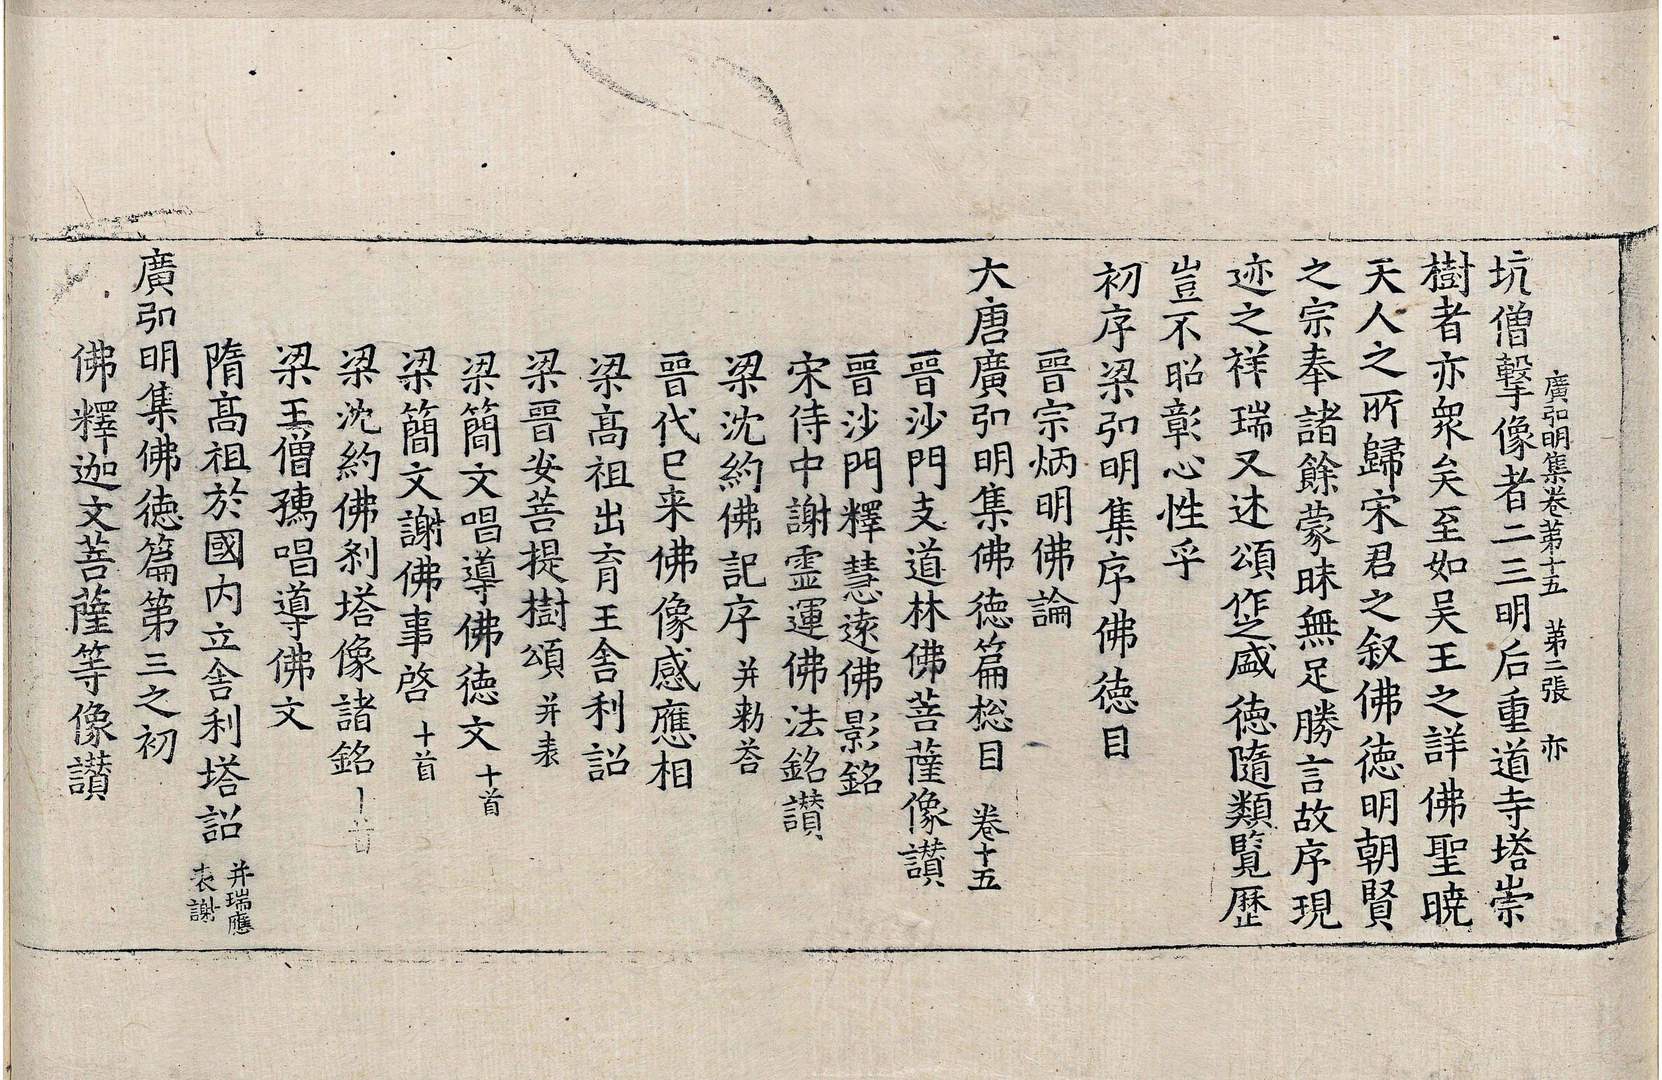 廣弘明集卷第十五 第二張 亦
坑僧擊像者二三明后重道寺塔崇
樹者亦衆矣至如吴王之詳佛聖曉
天人之所歸宋君之叙佛徳明朝賢
之宗奉諸餘蒙昧無足勝言故序現
迹之祥瑞又述頌作之盛徳隨類覽歷
豈不昭彰心性乎
初序梁弘明集序佛徳目
晉宗炳明佛論
大唐廣弘明集佛徳篇揔目 卷十五
晉沙門支道林佛菩薩像讃
晉沙門釋慧遠佛影銘
宋侍中謝靈運佛法銘讃
梁沈約佛記序 并勑荅
晉代已来佛像感應相
梁高祖出育王舍利詔
梁晉安菩提樹頌 并表
梁簡文唱導佛徳文 十首
梁簡文謝佛事啓 十首
梁沈約佛刹塔像諸銘 首
梁王僧孺唱導佛文
隋髙祖於國内立舍利塔詔 并瑞應
表謝
廣弘明集佛徳篇第三之初
佛釋迦文菩薩等像讃